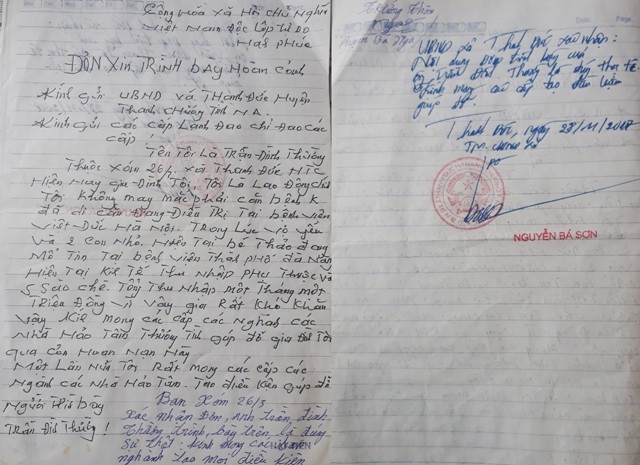 Cộng hòa xã Hội Chủ Nghĩa
Việt Nam Độc Lập Tự Do
Hạnh phúc
ĐƠN XIN TRÌNH bày Hoàn Cảnh
Kính gửi UBND xã THANH Đức Huyện
Thanh Chương Tỉnh N A
Kính gửi các cấp Lãnh Đạo chỉ Đạo các
cấp
Tên Tôi Là Trần Đình Thường
Thuộc xóm 26/3 xã Thanh Đức H T C
Hiện nay gia Đình Tôi, Tôi Là Lao Động chính
Tôi không may mắc phải căn bệnh K
đã di căn Đang Điều Trị Tại bệnh viện
việt Đức Hà Nội. Trong Lúc vợ yếu
và 2 con Nhỏ. Hiện tại bé Thảo đang
Mổ Tim Tại bệnh viện Thành phố đà Nẵng
Hiện Tại Kinh Tế Thu Nhập Phụ Thuộc vào
5 sào chè. Tổng Thu Nhập một Tháng một
Triệu Đồng vì vậy gia Rất Khó Khăn
vậy Kính mong các cấp các Nghành các
Nhà Hảo Tâm Thương Tình giúp đỡ gia Đình Tôi
qua cơn Hoạn Nạn Này
Một Lần Nữa Tôi Rất mong các cấp các
Ngành các Nhà Hảo Tâm. Tạo điều Kiện giúp đỡ
Người Trình bày
Trần Đình Thường!
Ban Xóm 26/3
Xác nhận Đơn, anh trần đình
Thường trình bày trên là đúng
sự thật: kính mong các
nghành tạo mọi điều kiện
UBND xã Thanh Đức xác nhận:
Nội dung trình bày của
ông Trần Đình Thường là đúng thực tế
Kính mong các cấp tạo điều kiện
giúp đỡ.
Thanh Đức, ngày 28/11/2017
TM. UBND xã
NGUYỄN BÁ SƠN